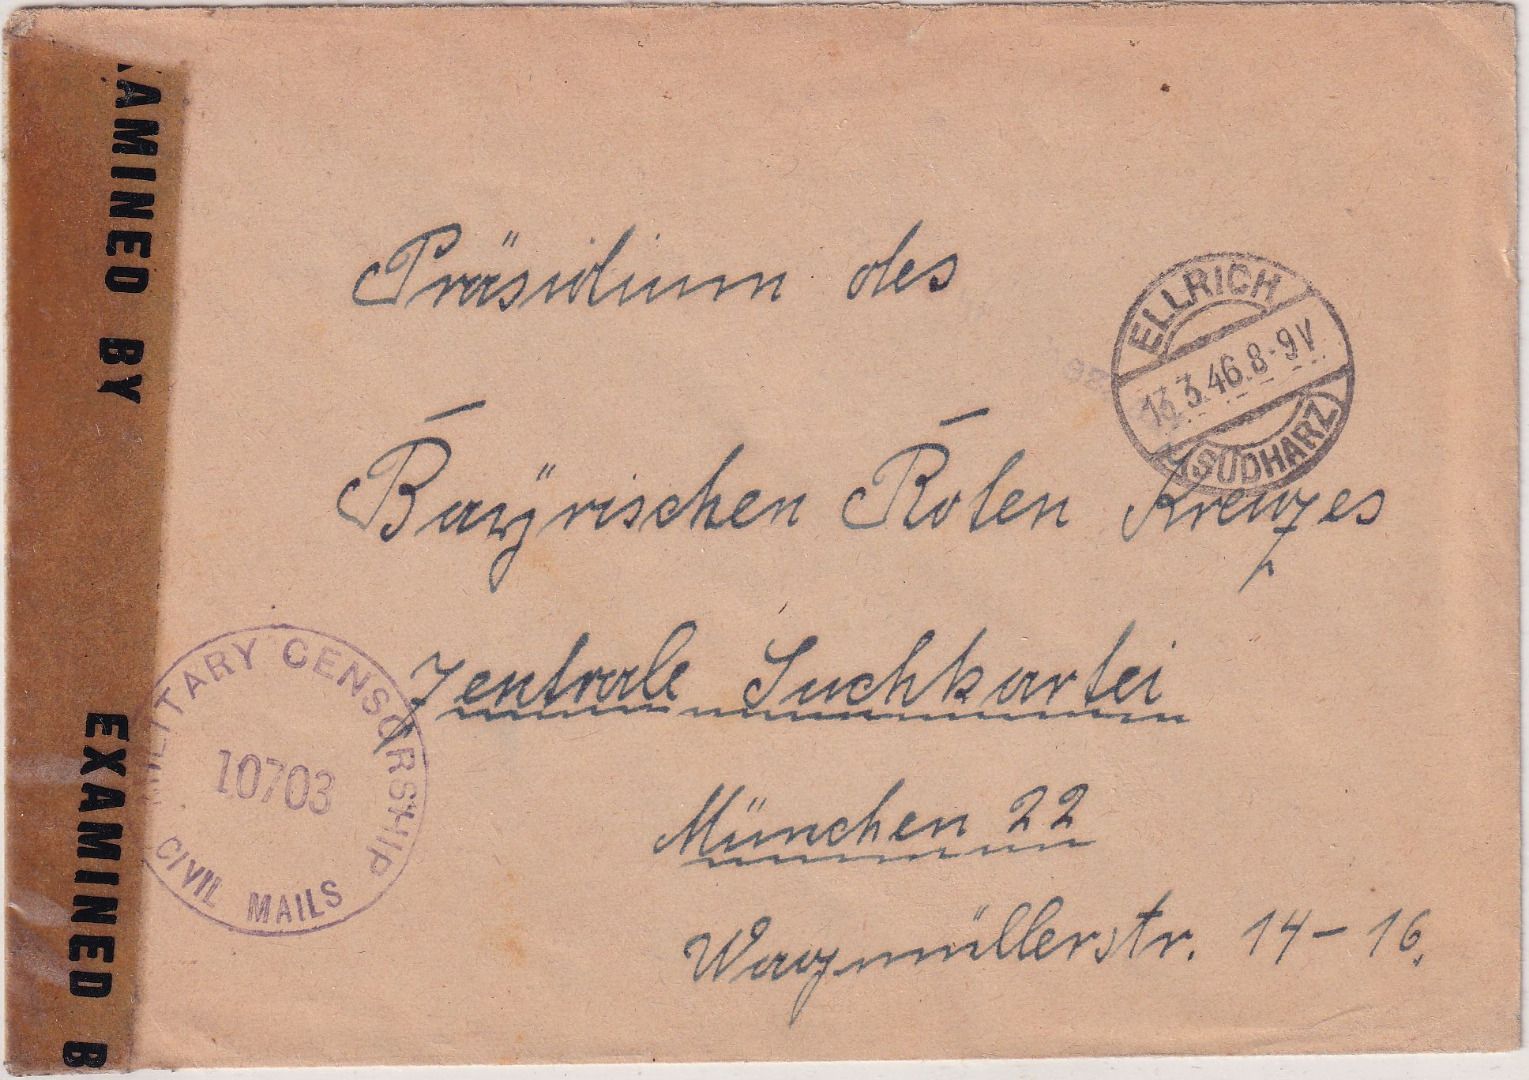 AMINED BY
EXAMINED B
Präsidium des
Bayrischen Roten Kreuzes
Zentrale Suchkartei
München 22
Wagmüllerstr. 14-16.
ELLRICH
13.3.46.8-9V
(SÜDHARZ)
MILITARY CENSORSHIP
10703
CIVIL MAILS